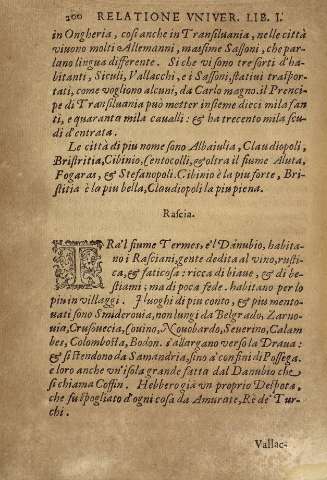 200 RELATIONE VNIVER. LIB. I.
in Ongheria, così anche in Transiluania, nelle città
viuono molti Allemanni, massime Sassoni, che par-
lano lingua differente. Si che vi sono tre sorti d'ha-
bitanti, Siculi, Vallacchi, e i Sassoni, statiui traspor-
tati, come vogliono alcuni, da Carlo magno. il Prenci-
pe di Transiluania può metter insieme dieci mila fan-
ti, e quaranta mila caualli: & ha trecento mila scu-
di d'entrata.
Le città di piu nome sono Albaiulia, Claudiopoli,
Bristritia, Cibinio, Sentocolli, & oltra il fiume Aluta,
Fogaras, & Stefanopoli. Cibinio è la piu forte, Bri-
stitia è la piu bella, Claudiopoli la piu piena.
Rascia.
TRa'l fiume Termes, e'l Danubio, habita-
no i Rasciani, gente dedita al vino, rusti-
ca, & faticosa: ricca di biaue, & di be-
stiami; ma di poca fede. habitano per lo
piu in villaggi. I luoghi di piu conto, & piu mento-
uati sono Smiderouia, non lungi da Belgrado, Zarno-
uia, Crusouecia, Couino, Nouobardo, Seuerino, Calam
bes, Colombotta, Bodon. s'allargano verso la Draua:
& si stendono da Samandria, sino a' confini di Possega.
e loro anche vn'isola grande fatta dal Danubio che
si chiama Coffin. Hebbero gia vn proprio Despota,
che fu spogliato d'ogni cosa da Amurate, Rè de' Tur-
chi.
Vallac-